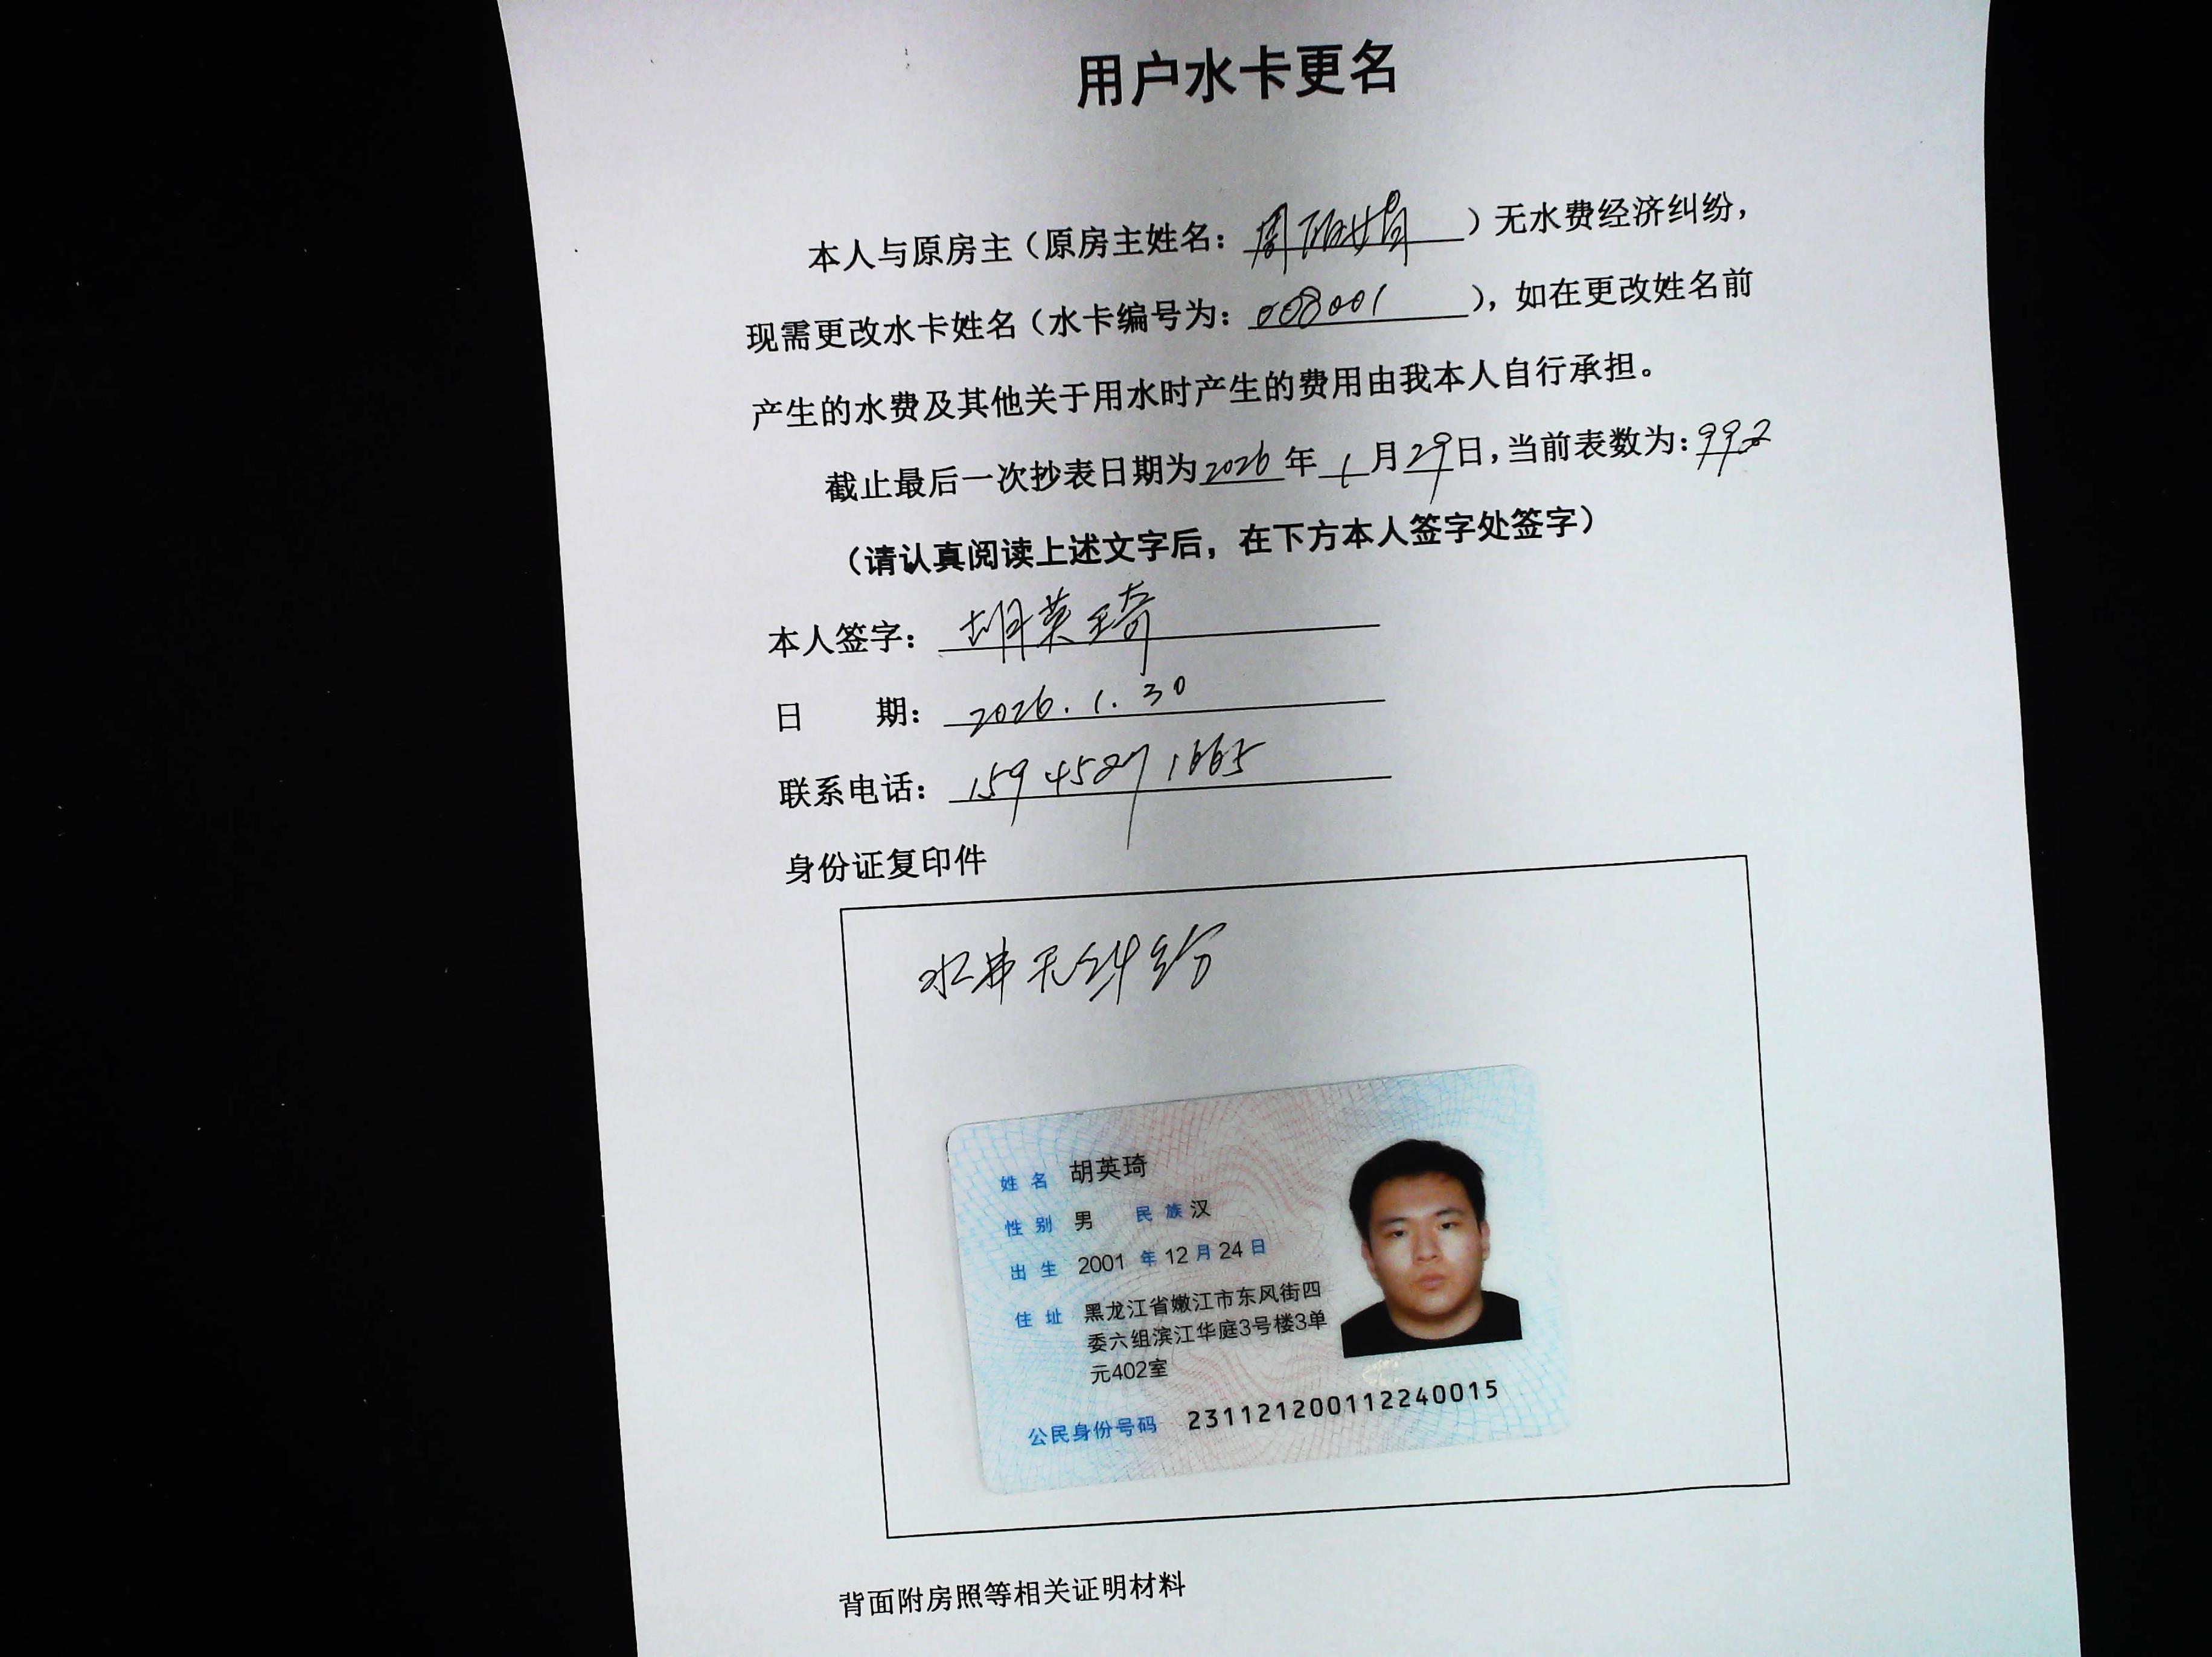 用户水卡更名
本人与原房主（原房主姓名：周）无水费经济纠纷，
现需更改水卡姓名（水卡编号为：008001），如在更改姓名前
产生的水费及其他关于用水时产生的费用由我本人自行承担。
截止最后一次抄表日期为2026年1月29日，当前表数为：992
（请认真阅读上述文字后，在下方本人签字处签字）
本人签字：胡英琦
日 期：2026.1.30
联系电话：159 4587 1665
身份证复印件
水费无纠纷
姓名 胡英琦
性别 男 民族 汉
出生 2001 年 12 月 24 日
住址 黑龙江省嫩江市东风街四
委六组滨江华庭3号楼3单
元402室
公民身份号码 231121200112240015
背面附房照等相关证明材料